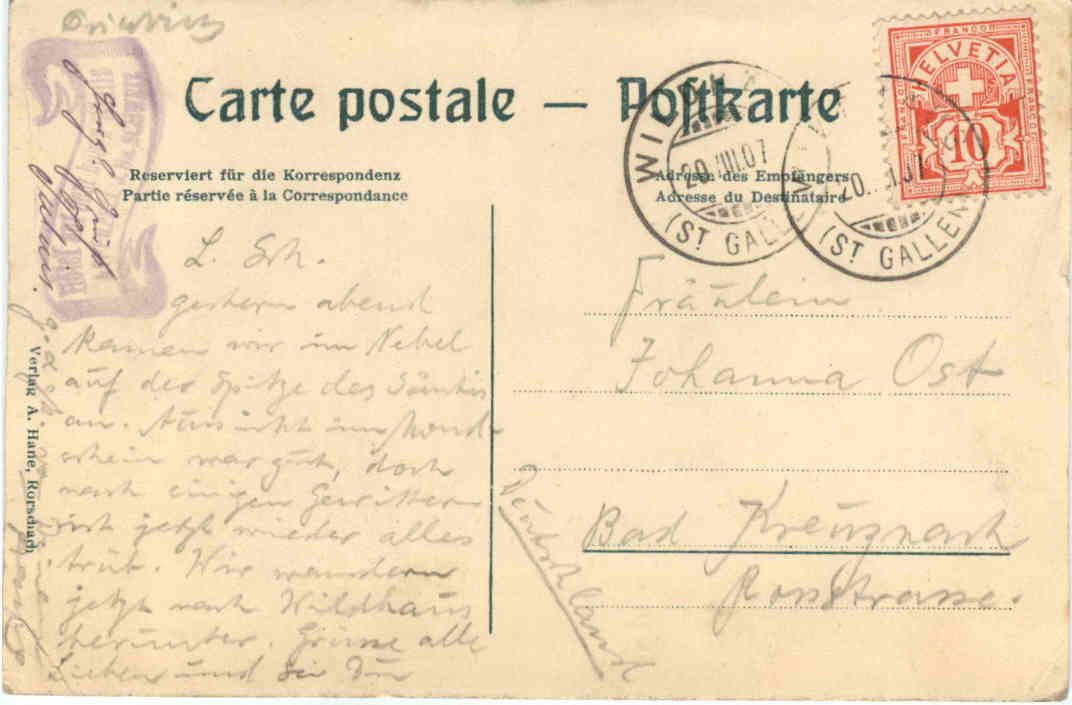 Carte postale — Postkarte
Reserviert für die Korrespondenz
Partie réservée à la Correspondance
Adresse des Empfängers
Adresse du Destinataire
FRANCO
HELVETIA
10
20. VIII.07
(ST GALLEN)
(ST GALLEN)
L. Sch.
gestern abend
kamen wir im Nebel
auf der Spitze des Säntis
an. Aussicht im Mond-
schein war gut, doch
nach einigen Gewittern
ist jetzt wieder alles
trüb. Wir wandern
jetzt nach Wildhaus
herunter. Grüsse alle
Lieben und sei Du
Fräulein
Johanna Ost
Bad Kreuznach
Rossstrasse.
Deutschland
Verlag A. Hane, Rorschach